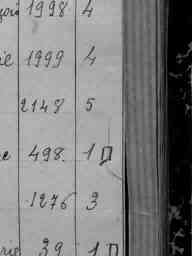 1998 4
1999 4
2148 5
498. 1
1276 3
39 1